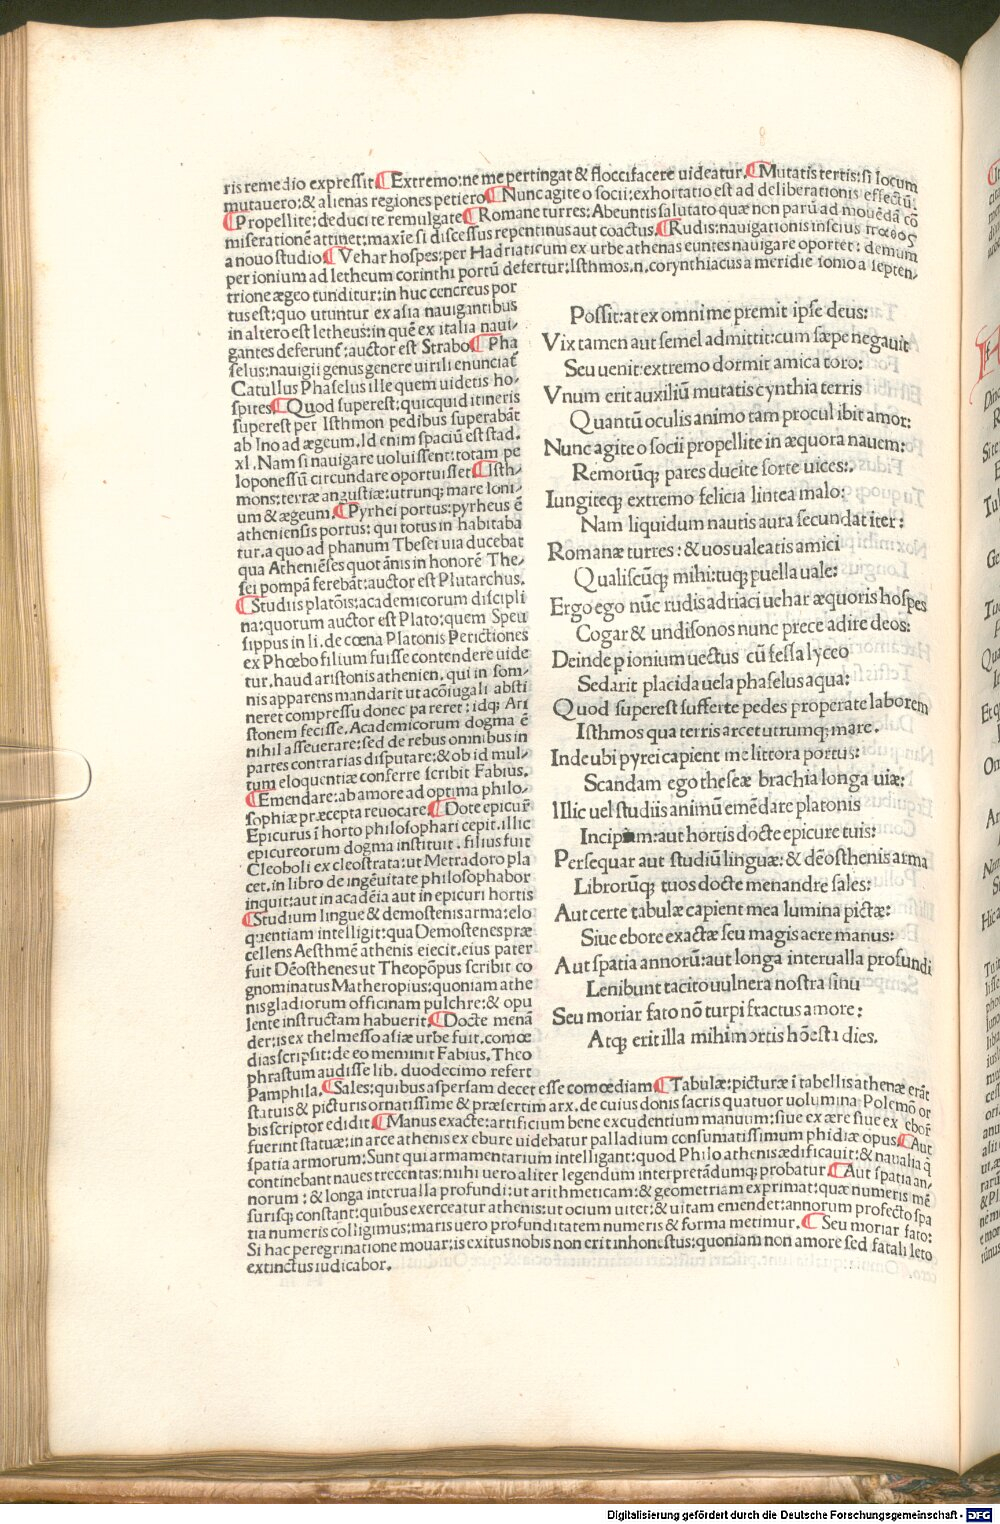 ris remedio expressit ¶ Extremo:ne me pertingat & floccifacere uideatur. ¶ Mutatis tertis:si locum
mutauero:& alienas regiones petiero ¶ Nunc agite o socii:exhortatio est ad deliberationis effectū.
¶ Propellite:deducite remulgate ¶ Romane turres:Abeuntis salutato quæ non parū ad mouēdā cō
miserationē attinet:maxie si discessus repentinus aut coactus. ¶ Rudis:nauigationis inscius
a nouo studio ¶ Vehar hospes:per Hadriaticum ex urbe athenas euntes nauigare oportet: demum
per ionium ad letheum corinthi portū defertur:Isthmos.n.corynthiacus a meridie ionio a septen-
trione ægeo tunditur:in huc cencreus por
tus est:quo utuntur ex asia nauigantibus
in altero est letheus:in quē ex italia naui-
gantes deferunt̄:auctor est Strabo ¶ Pha
selus:nauigii genus genere uirili enunciat̄
Catullus Phaselus ille quem uidetis ho-
spites ¶ Quod superest:quicquid itineris
superest per Isthmon pedibus superabāt
ab Ino ad ægeum.Id enim spaciū est stad.
xl.Nam si nauigare uoluissent:totam pe
loponessū circundare oportuisset ¶ Isth-
mons:terræ angustiæ:utrunq; mare Ioni-
um & ægeum. ¶ Pyrhei portus:pyrheus ē
atheniensis portus: qui totus in habitaba
tur.a quo ad phanum Thesei uia ducebat
qua Atheniēses quot ānis in honorē The-
sei pompā ferebāt:auctor est Plutarchus.
¶ Studiis platōis:academicorum discipli
na:quorum auctor est Plato:quem Speu
sippus in li.de cœna Platonis Perictiones
ex Phœbo filium fuisse contendere uide
tur.haud aristonis athenien.qui in som-
nis apparens mandarit ut acōiugali absti
neret compressu donec pareret:idq; Ari
stonem fecisse.Academicorum dogma ē
nihil asseuerare:sed de rebus omnibus in
partes contrarias disputare:& ob id mul-
tum eloquentiæ conferre scribit Fabius.
¶ Emendare:ab amore ad optima philo-
sophiæ præcepta reuocare. ¶ Docte epicur̄
Epicurus ī horto philosophari cepit.illic
epicureorum dogma instituit.filius fuit
Cleoboli ex cleostrata:ut Metradoro pla
cet.in libro de ingēuitate philosophabor
inquit:aut in acadēia aut in epicuri hortis
¶ Studium lingue & demostenis arma:elo
quentiam intelligit:qua Demostenes præ
cellens Aesthmē athenis eiecit.eius pater
fuit Dēosthenes ut Theopōpus scribit co
gnominatus Matheropius:quoniam athe
nis gladiorum officinam pulchre:& opu
lente instructam habuerit. ¶ Docte menā
der:is ex thelmesso asiæ urbe fuit.comœ
dias scripsit:de eo meminit Fabius.Theo
phrastum audisse lib. duodecimo refert
Pamphila. ¶ Sales:quibus aspersam decet esse comœdiam ¶ Tabulæ:picturæ ī tabellis athenæ erāt
statuis & picturis ornatissime & præsertim arx.de cuius donis sacris quatuor uolumina Polemō or
bis scriptor edidit ¶ Manus exacte:artificium bene excudentium manuum:siue ex ære siue ex ebor̄
fuerint statuæ:in arce athenis ex ebure uidebatur palladium consumatissimum phidiæ opus ¶ Aut
spatia armorum:Sunt qui armamentarium intelligant:quod Philo athenis ædificauit:& naualia q̄
continebant naues trecentas:mihi uero aliter legendum interpretādumq; probatur. ¶ Aut spatia an-
norum : & longa interualla profundi:ut arithmeticam:& geometriam exprimat:quæ numeris mē
surisq; constant:quibus exerceatur athenis:ut ocium uitet:& uitam emendet:annorum profecto spa
tia numeris colligimus:maris uero profunditatem numeris & forma metimur. ¶ Seu moriar fato:
Si hac peregrinatione mouar:is exitus nobis non erit inhonestus:quoniam non amore sed fatali leto
extinctus iudicabor.
Possit:at ex omni me premit ipse deus:
Vix tamen aut semel admittit:cum sæpe negauit
Seu uenit:extremo dormit amica toro:
Vnum erit auxiliū mutatis cynthia terris
Quantū oculis animo tam procul ibit amor:
Nunc agite o socii propellite in æquora nauem:
Remorūq; pares ducite sorte uices:.
Iungiteq; extremo felicia lintea malo:
Nam liquidum nautis aura secundat iter:
Romanæ turres : & uos ualeatis amici
Qualiscūq; mihi:tuq; puella uale:
Ergo ego nūc rudis adriaci uehar æquoris hospes
Cogar & undisonos nunc prece adire deos:
Deinde p ionium uectus cū fessa lyceo
Sedarit placida uela phaselus aqua:
Quod superest sufferte pedes properate laborem
Isthmos qua terris arcet utrumq; mare.
Inde ubi pyrei capient me littora portus:
Scandam ego theseæ brachia longa uiæ:
Illic uel studiis animū emēdare platonis
Incipiam:aut hortis docte epicure tuis:
Persequar aut studiū linguæ:& dēosthenis arma
Librorūq; tuos docte menandre sales:
Aut certe tabulæ capient mea lumina pictæ:
Siue ebore exactæ seu magis aere manus:
Aut spatia annorū:aut longa interualla profundi
Lenibunt tacito uulnera nostra sinu
Seu moriar fato nō turpi fractus amore:
Atq; erit illa mihi mortis hōesta dies.
Digitalisierung gefördert durch die Deutsche Forschungsgemeinschaft - DFG